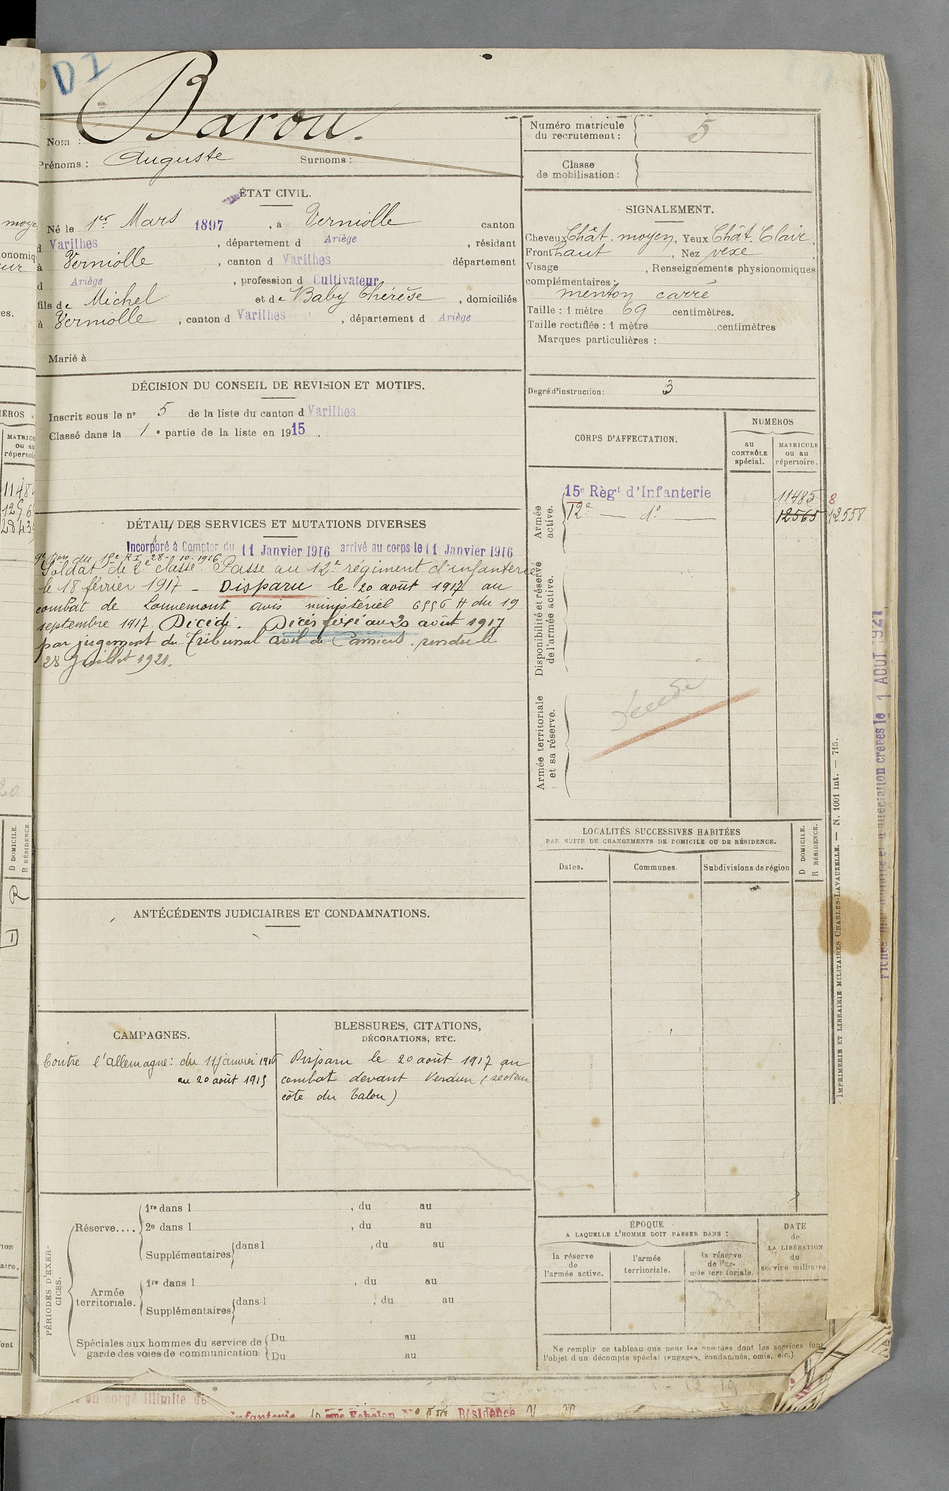 D1
Nom : Barou.
Prénoms : Auguste Surnoms :
ÉTAT CIVIL.
Né le 1er Mars 1897, à Verniolle canton
d Varilhes, département d Ariège, résidant
à Verniolle, canton d Varilhes département
d Ariège, profession d Cultivateur
fils de Michel et de Baby Thérèse, domiciliés
à Verniolle, canton d Varilhes, département d Ariège
Marié à
DÉCISION DU CONSEIL DE REVISION ET MOTIFS.
Inscrit sous le n° 5 de la liste du canton d Varilhes
Classé dans la 1e partie de la liste en 1915.
DÉTAIL DES SERVICES ET MUTATIONS DIVERSES
Incorporé à Compter du 11 Janvier 1916 arrivé au corps le 11 Janvier 1916
du 15e R I 28-10-1916
Soldat de 2e classe. Passe au 12e régiment d'infanterie
le 18 février 1917 - Disparu le 20 août 1917 au
combat de Louvemont avis ministériel 6556 H du 19
septembre 1917 Décédé. Décès fixé au 20 août 1917
par jugement du Tribunal civil de Pamiers rendu le
28 Juillet 1921.
ANTÉCÉDENTS JUDICIAIRES ET CONDAMNATIONS.
CAMPAGNES.
Contre l'Allemagne : du 11 janvier 1916
au 20 août 1917
BLESSURES, CITATIONS,
DÉCORATIONS, ETC.
Disparu le 20 août 1917 au
combat devant Verdun (secteur
côte du Talou)
PÉRIODES D'EXERCICES.
Réserve.... 1re dans l , du au
2e dans l , du au
Supplémentaires dans l , du au
Armée territoriale. 1re dans l , du au
Supplémentaires dans l , du au
Spéciales aux hommes du service de garde des voies de communication Du au
Du au
Numéro matricule
du recrutement : 5
Classe
de mobilisation :
SIGNALEMENT.
Cheveux Chât. moyen, Yeux Chât. Clair,
Front haut, Nez vexe
Visage , Renseignements physionomiques
complémentaires :
menton carré
Taille : 1 mètre 69 centimètres.
Taille rectifiée : 1 mètre centimètres
Marques particulières :
Degré d'instruction : 3
CORPS D'AFFECTATION.
NUMÉROS
au
CONTRÔLE
spécial.
MATRICULE
ou au
répertoire.
Armée
active.
15e Régt d'Infanterie 11485 8
12e — do — 12565 12558
Disponibilité et réserve
de l'armée active.
Armée territoriale
et sa réserve.
Décédé
LOCALITÉS SUCCESSIVES HABITÉES
PAR SUITE DE CHANGEMENTS DE DOMICILE OU DE RÉSIDENCE.
Dates.
Communes
Subdivisions de région
D DOMICILE.
R RÉSIDENCE.
ÉPOQUE
A LAQUELLE L'HOMME DOIT PASSER DANS :
la réserve
de
l'armée active.
l'armée
territoriale.
la réserve
de l'ar-
mée territoriale.
DATE
de
LA LIBÉRATION
du
service militaire.
Ne remplir ce tableau que pour les hommes dont les services font
l'objet d'un décompte spécial (engagés, condamnés, omis, etc.)
IMPRIMERIE ET LIBRAIRIE MILITAIRES CHARLES-LAVAUZELLE. — N. 1001 int. — 715.
1 AOUT 1921
en congé illimité de
Infanterie Echelon Résidence